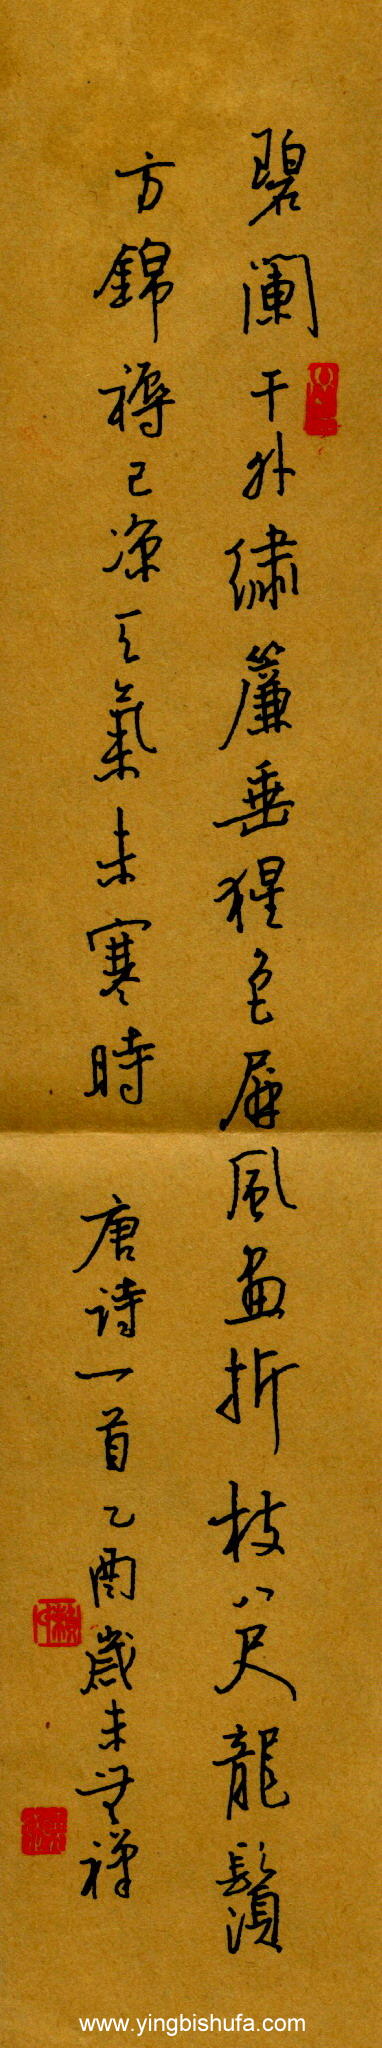 碧阑干外绣簾垂猩色屏风畫折枝八尺龍鬚
方錦褥已凉天氣未寒時
唐诗一首乙酉歲末
www.yingbishufa.com